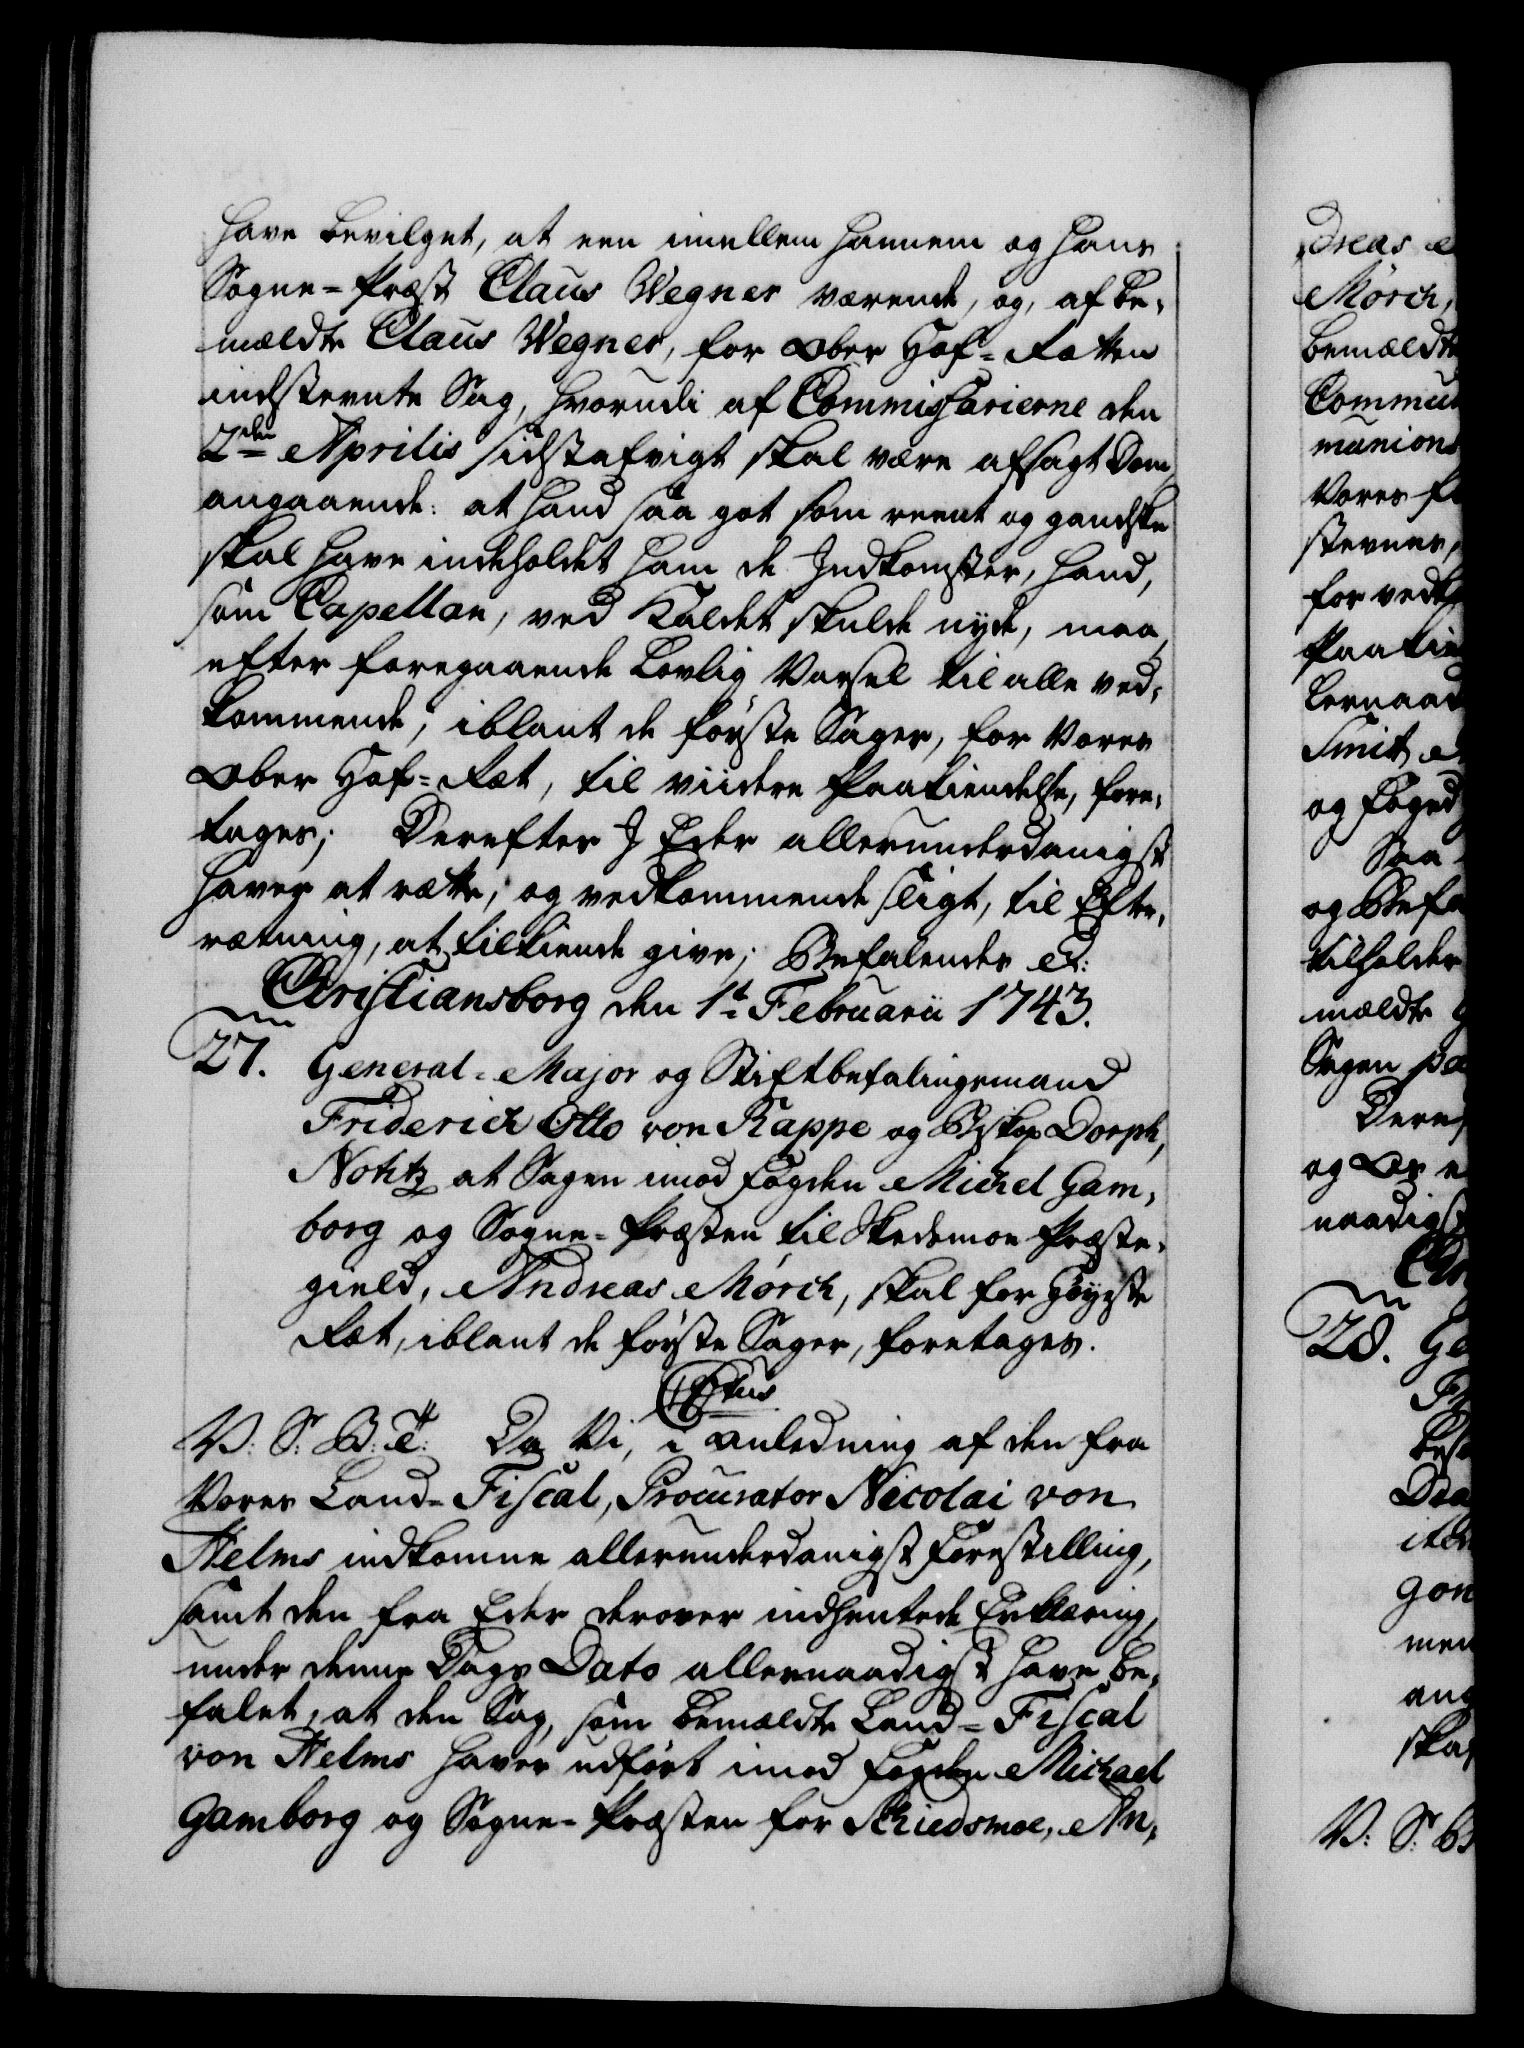 have bevilget, at een imellem hannem og hans
Sogne-Præst Claus Wegner værende, og, af be-
mældte Claus Wegner, for Ober Hof-Retten
indstevnte Sag, hvorudi af Commissarierne den
2den Aprilis sidstafvigt skal være afsagt Dom,
angaaende: at hand saa got som reent og gandske
skal have indeholdet ham de Indkomster, hand,
som Capellan, ved Kaldet skulde nyde, maa,
efter foregaaende Lovlig Varsel til alle ved-
kommende, iblant de første Sager, for Vores
Ober Hof-Ret, til viidere Paakiendelse, fore-
tages; Derefter I Eder allerunderdanigst
haver at rette, og vedkommende sligt, til Efter-
retning, at tilkiende give; Befalendes &:
Christiansborg den 1t Februarii 1743.
27. General-Major og Stiftbefalingsmand
Friderich Otto von Rappe og Biskop Dorph,
Notitz at Sagen imod Fogden Michel Gam-
borg og Sogne-Præsten til Skedsmoe Præste-
gield, Andreas Mørch, skal for Høyeste
Ret, iblant de første Sager, foretages.
V: S: B: T: Da Vi, i Anledning af den fra
Vores Land-Fiscal, Procurator Nicolai von
Helms indkomne allerunderdanigst Forestilling,
samt den fra Eder derover indhentede Erklæring,
under denne Dags Dato allernaadigst have be-
falet, at den Sag, som bemældte Land-Fiscal
von Helms haver udført imod Fogden Michael
Gamborg og Sogne-Præsten for Schiedsmoe, An-
dreas
Mørch,
bemældte
munions
Vores
stevnes,
for
og Foged
Saa
og Befa
tilholder
mældte
Sagen
og
28. Ge
ang
V: S: B